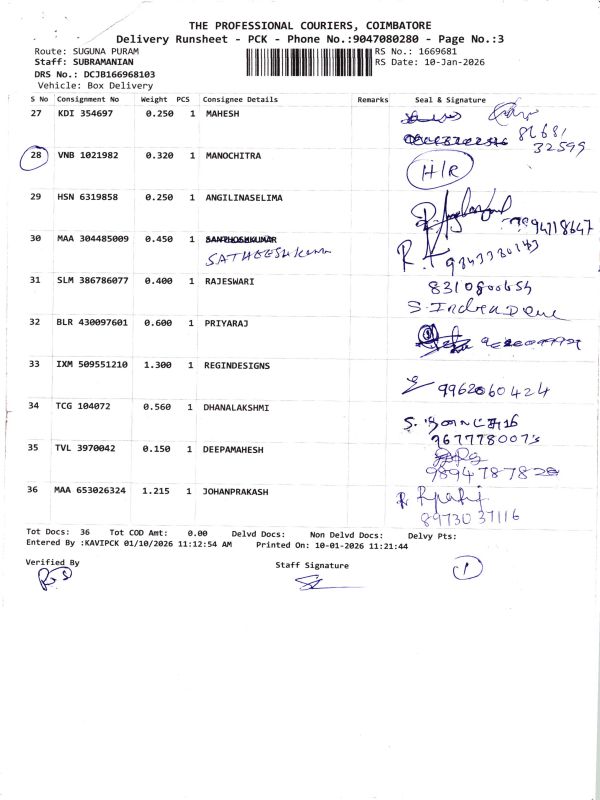 THE PROFESSIONAL COURIERS, COIMBATORE
Delivery Runsheet - PCK - Phone No.:9047080280 - Page No.:3
Route: SUGUNA PURAM RS No.: 1669681
Staff: SUBRAMANIAN RS Date: 10-Jan-2026
DRS No.: DCJB166968103
Vehicle: Box Delivery
S No Consignment No Weight PCS Consignee Details Remarks Seal & Signature
27 KDI 354697 0.250 1 MAHESH
82681
32599
28 VNB 1021982 0.320 1 MANOCHITRA H/R
29 HSN 6319858 0.250 1 ANGILINASELIMA
9994718647
30 MAA 304485009 0.450 1 SANTHOSHKUMAR
SATHEESHKUMAR
9843380143
31 SLM 386786077 0.400 1 RAJESWARI 8310800654
32 BLR 430097601 0.600 1 PRIYARAJ
33 IXM 509551210 1.300 1 REGINDESIGNS
9962060424
34 TCG 104072 0.560 1 DHANALAKSHMI
9677780073
35 TVL 3970042 0.150 1 DEEPAMAHESH
9894787828
36 MAA 653026324 1.215 1 JOHANPRAKASH
8973037116
Tot Docs: 36 Tot COD Amt: 0.00 Delvd Docs: Non Delvd Docs: Delvy Pts:
Entered By :KAVIPCK 01/10/2026 11:12:54 AM Printed On: 10-01-2026 11:21:44
Verified By Staff Signature 1